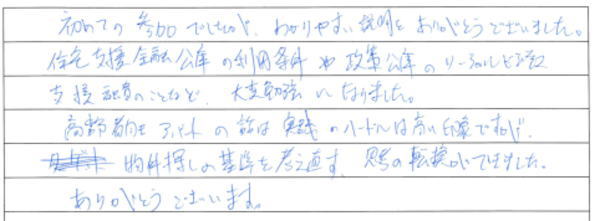 初めての参加でしたが、わかりやすい説明をありがとうございました。
住宅支援金融公庫の利用条件や政策公庫のソーシャルビジネス
支援融資のことなど、大変勉強になりました。
高齢者向アパートの話は実践のハードルは高い印象ですが、
物件探しの基準を考え直す、思考の転換ができました。
ありがとうございます。